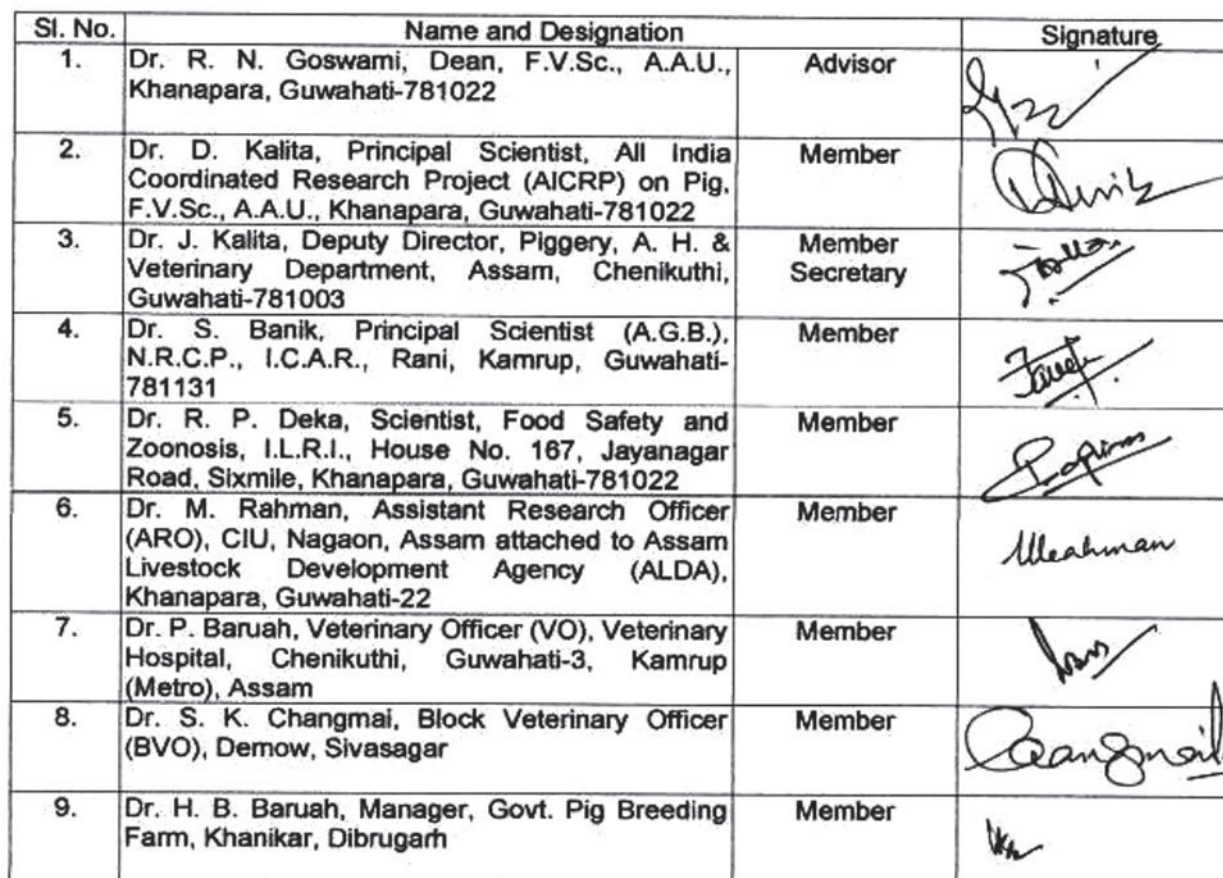 Sl. No. Name and Designation Signature
1. Dr. R. N. Goswami, Dean, F.V.Sc., A.A.U., Advisor
Khanapara, Guwahati-781022
2. Dr. D. Kalita, Principal Scientist, All India Member
Coordinated Research Project (AICRP) on Pig,
F.V.Sc., A.A.U., Khanapara, Guwahati-781022
3. Dr. J. Kalita, Deputy Director, Piggery, A. H. & Member
Veterinary Department, Assam, Chenikuthi, Secretary
Guwahati-781003
4. Dr. S. Banik, Principal Scientist (A.G.B.), Member
N.R.C.P., I.C.A.R., Rani, Kamrup, Guwahati-
781131
5. Dr. R. P. Deka, Scientist, Food Safety and Member
Zoonosis, I.L.R.I., House No. 167, Jayanagar
Road, Sixmile, Khanapara, Guwahati-781022
6. Dr. M. Rahman, Assistant Research Officer Member
(ARO), CIU, Nagaon, Assam attached to Assam
Livestock Development Agency (ALDA),
Khanapara, Guwahati-22
7. Dr. P. Baruah, Veterinary Officer (VO), Veterinary Member
Hospital, Chenikuthi, Guwahati-3, Kamrup
(Metro), Assam
8. Dr. S. K. Changmai, Block Veterinary Officer Member
(BVO), Demow, Sivasagar
9. Dr. H. B. Baruah, Manager, Govt. Pig Breeding Member
Farm, Khanikar, Dibrugarh